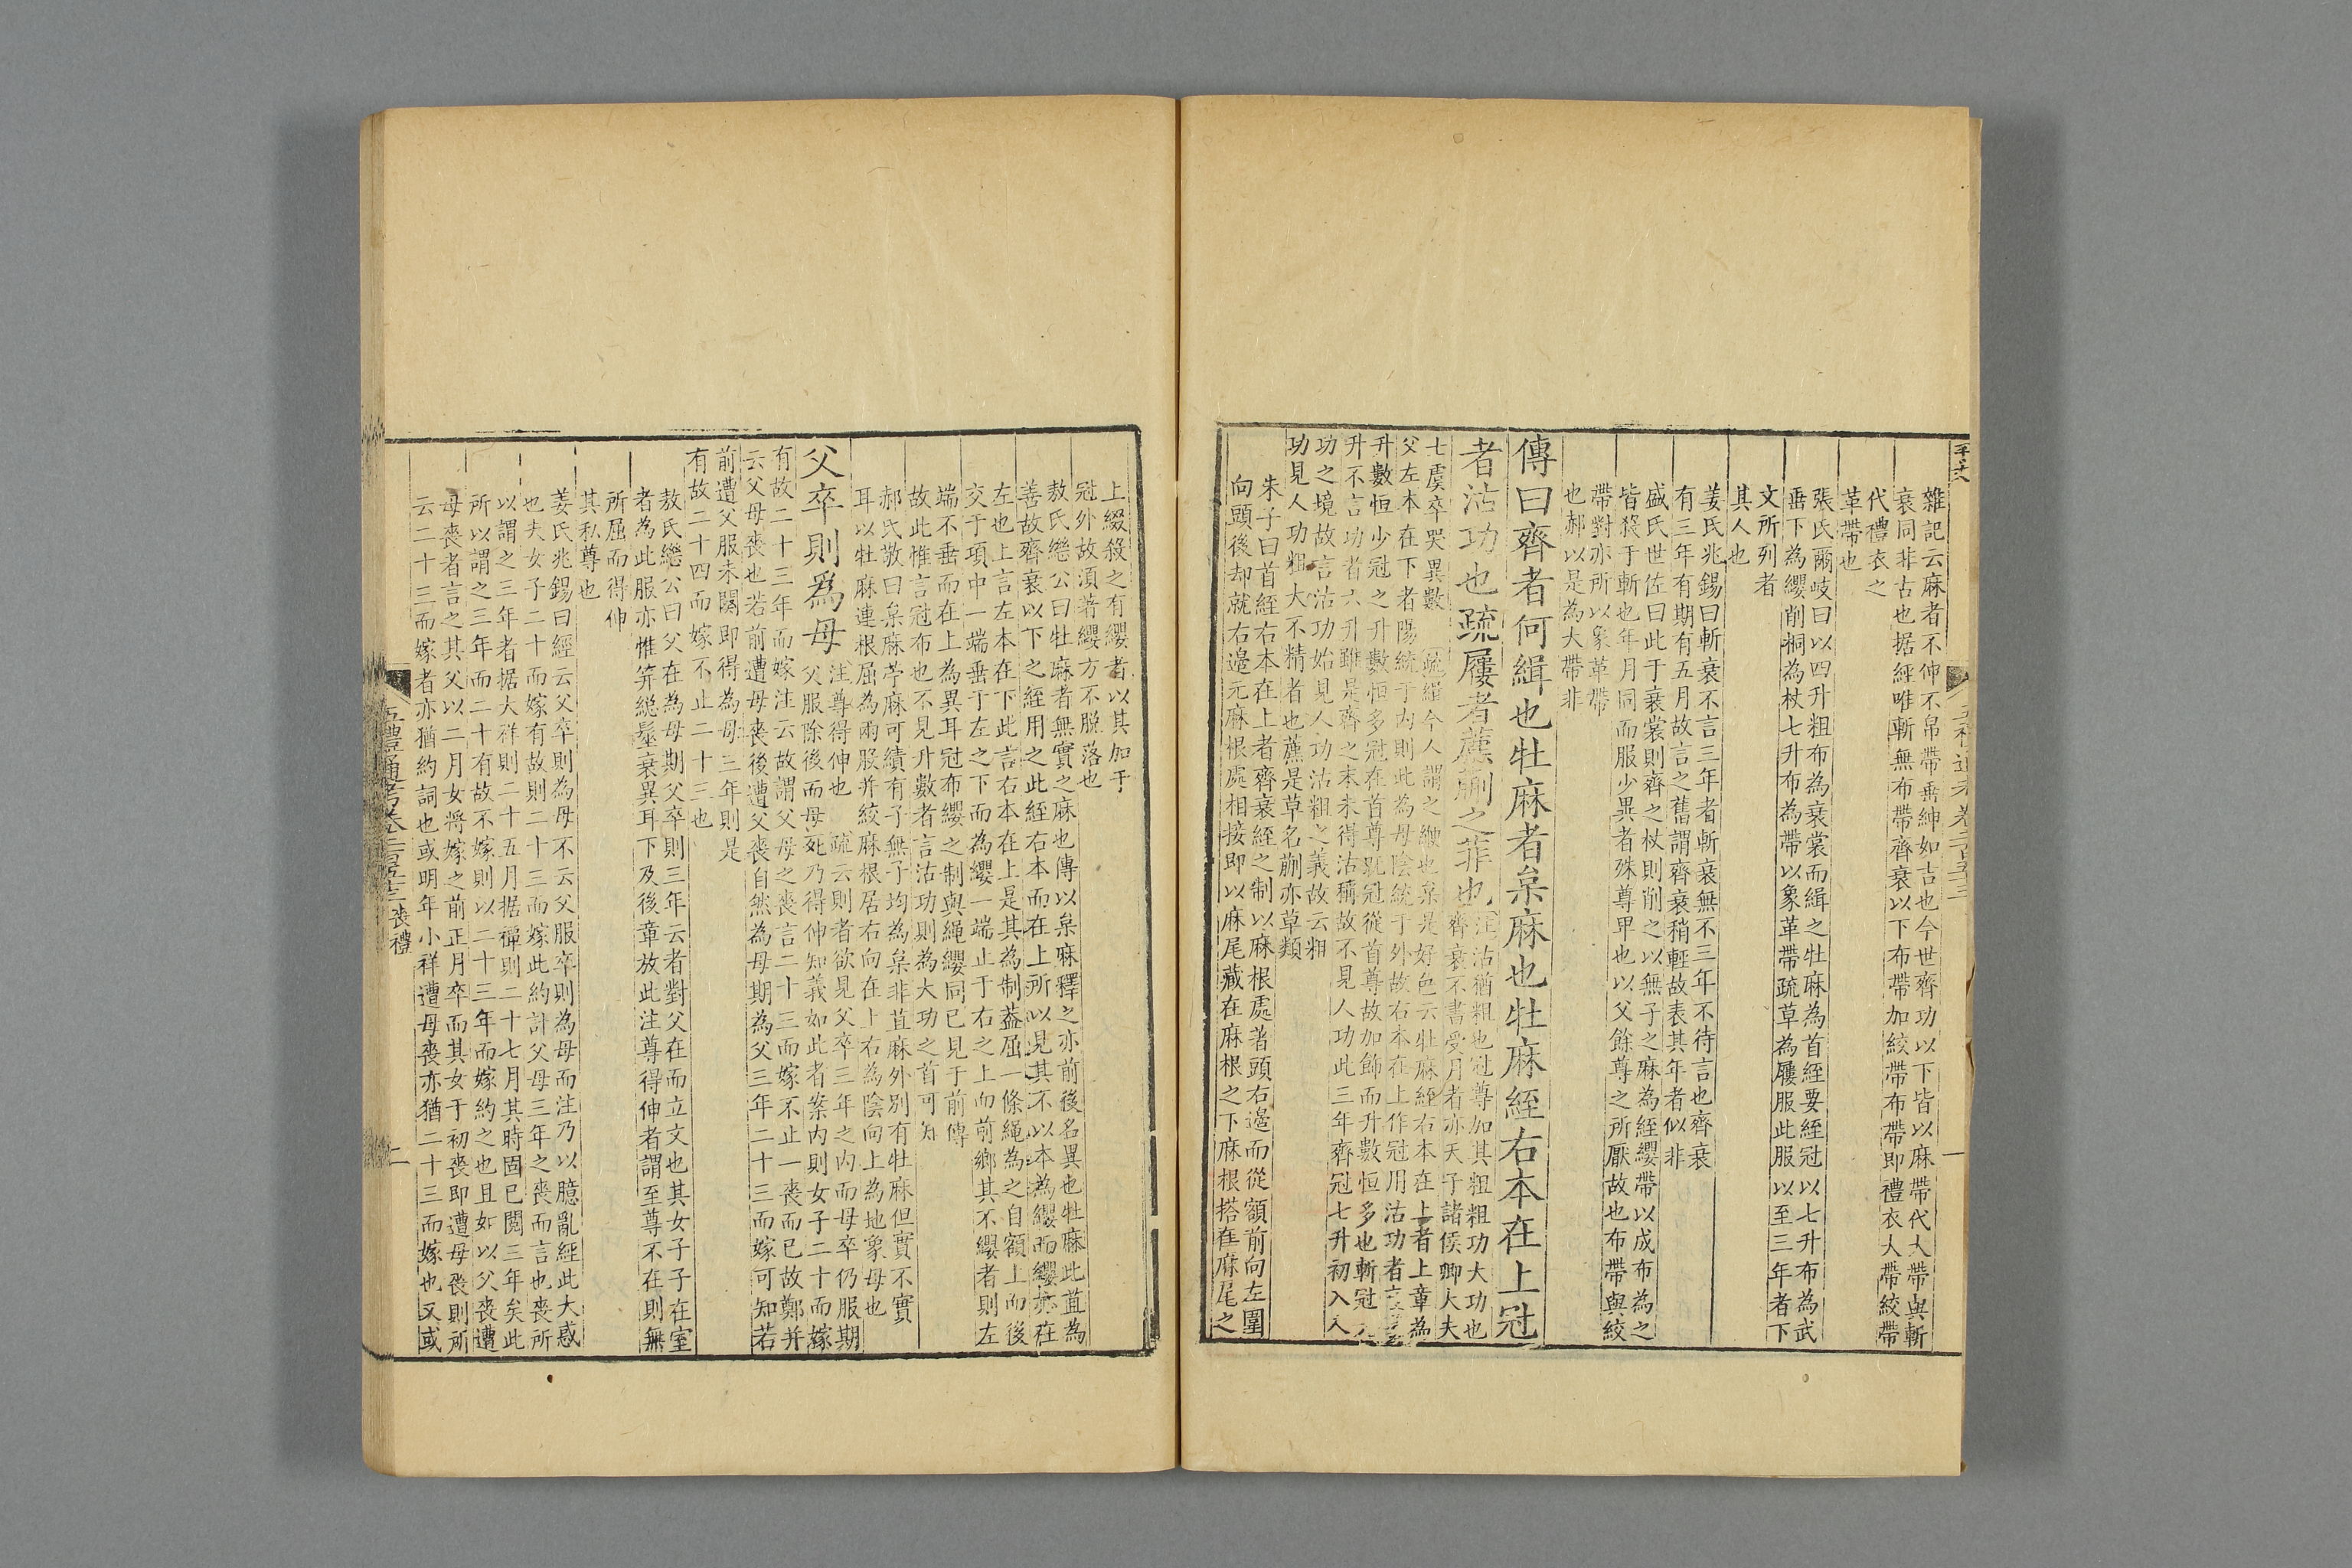 雜記云麻者不伸不帛帶垂紳如吉也今世齊功以下皆以麻帶代大帶與斬
衰同非古也据經唯斬無布帶齊衰以下布帶加絞帶布帶即禮衣大帶絞帶
代禮衣之
革帶也
張氏爾岐曰以四升粗布為衰裳而緝之牡麻為首絰要絰冠以七升布為武
垂下為纓削桐為杖七升布為帶以象革帶疏草為屨服此服以至三年者下
文所列者
其人也
姜氏兆錫曰斬衰不言三年者斬衰無不三年不待言也齊衰
有三年有期有五月故言之舊謂齊衰稍輕故表其年者似非
盛氏世佐曰此于衰裳則齊之杖則削之以無子之麻為絰纓帶以成布為之
皆殺于斬也年月同而服少異者殊尊卑也以父餘尊之所厭故也布帶與絞
帶對亦所以象革帶
也郝以是為大帶非
傳曰齊者何緝也牡麻者枲麻也牡麻絰右本在上冠
者沽功也疏屨者藨蒯之菲也
注沽猶粗也冠尊加其粗粗功大功也
齊衰不書受月者亦天子諸侯卿大夫
七虞卒哭異數
疏緝今人謂之緶也枲是好色云牡麻絰右本在上者上章為
父左本在下者陽統于內則此為母陰統于外故右本在上作冠用沽功者
升數恒少冠之升數恒多冠在首尊既冠從首尊故加飾而升數恒多也斬冠
升不言功者六升雖是齊之末未得沽稱故不見人功此三年齊冠七升初入入
功之境故言沽功始見人功沽粗之義故云粗
功見人功粗大不精者也藨是草名蒯亦草類
朱子曰首絰右本在上者齊衰絰之制以麻根處著頭右邊而從額前向左圍
向頭後却就右邊元麻根處相接即以麻尾藏在麻根之下麻根搭在麻尾之
上綴殺之有纓者以其加于
冠外故須著纓方不脫落也
敖氏繼公曰牡麻者無實之麻也傳以枲麻釋之亦前後名異也牡麻此苴為
善故齊衰以下之絰用之此絰右本而在上所以見其不以本為纓而纓亦在
左也上言左本在下此言右本在上是其為制葢屈一條繩為之自額上而後
交于項中一端垂于左之下而為纓一端止于右之上而前鄉其不纓者則左
端不垂而在上為異耳冠布纓之制與繩纓同已見于前傳
故此惟言冠布也不見升數者言沽功則為大功之首可知
郝氏敬曰枲麻苧麻可績有子無子均為枲非苴麻外別有牡麻但實不實
耳以牡麻連根屈為兩股并絞麻根居右向在上右為陰向上為地象母也
父卒則爲母
注尊得伸也
疏云則者欲見父卒三年之內而母卒仍服期
父服除後而母死乃得伸知義如此者案內則女子二十而嫁
有故二十三年而嫁注云故謂父母之喪言二十三而嫁不止一喪而已故鄭并
云父母喪也若前遭母喪後遭父喪自然為母期為父三年二十三而嫁可知若
前遭父服未闋即得為母三年則是
有故二十四而嫁不止二十三也
敖氏繼公曰父在為母期父卒則三年云者對父在而立文也其女子子在室
者為此服亦惟笄緫髽衰異耳下及後章放此注尊得伸者謂至尊不在則無
所屈而得伸
其私尊也
姜氏兆錫曰經云父卒則為母不云父服卒則為母而注乃以臆亂經此大惑
也夫女子二十而嫁有故則二十三而嫁此約計父母三年之喪而言也喪所
以謂之三年者据大祥則二十五月据禫則二十七月其時固已閱三年矣此
所以謂之三年而二十有故不嫁則以二十三年而嫁約之也且如以父喪遭
母喪者言之其父以二月女將嫁之前正月卒而其女于初喪即遭母喪則所
云二十三而嫁者亦猶約詞也或明年小祥遭母喪亦猶二十三而嫁也又或
五禮通考卷二百五十三 喪禮
二